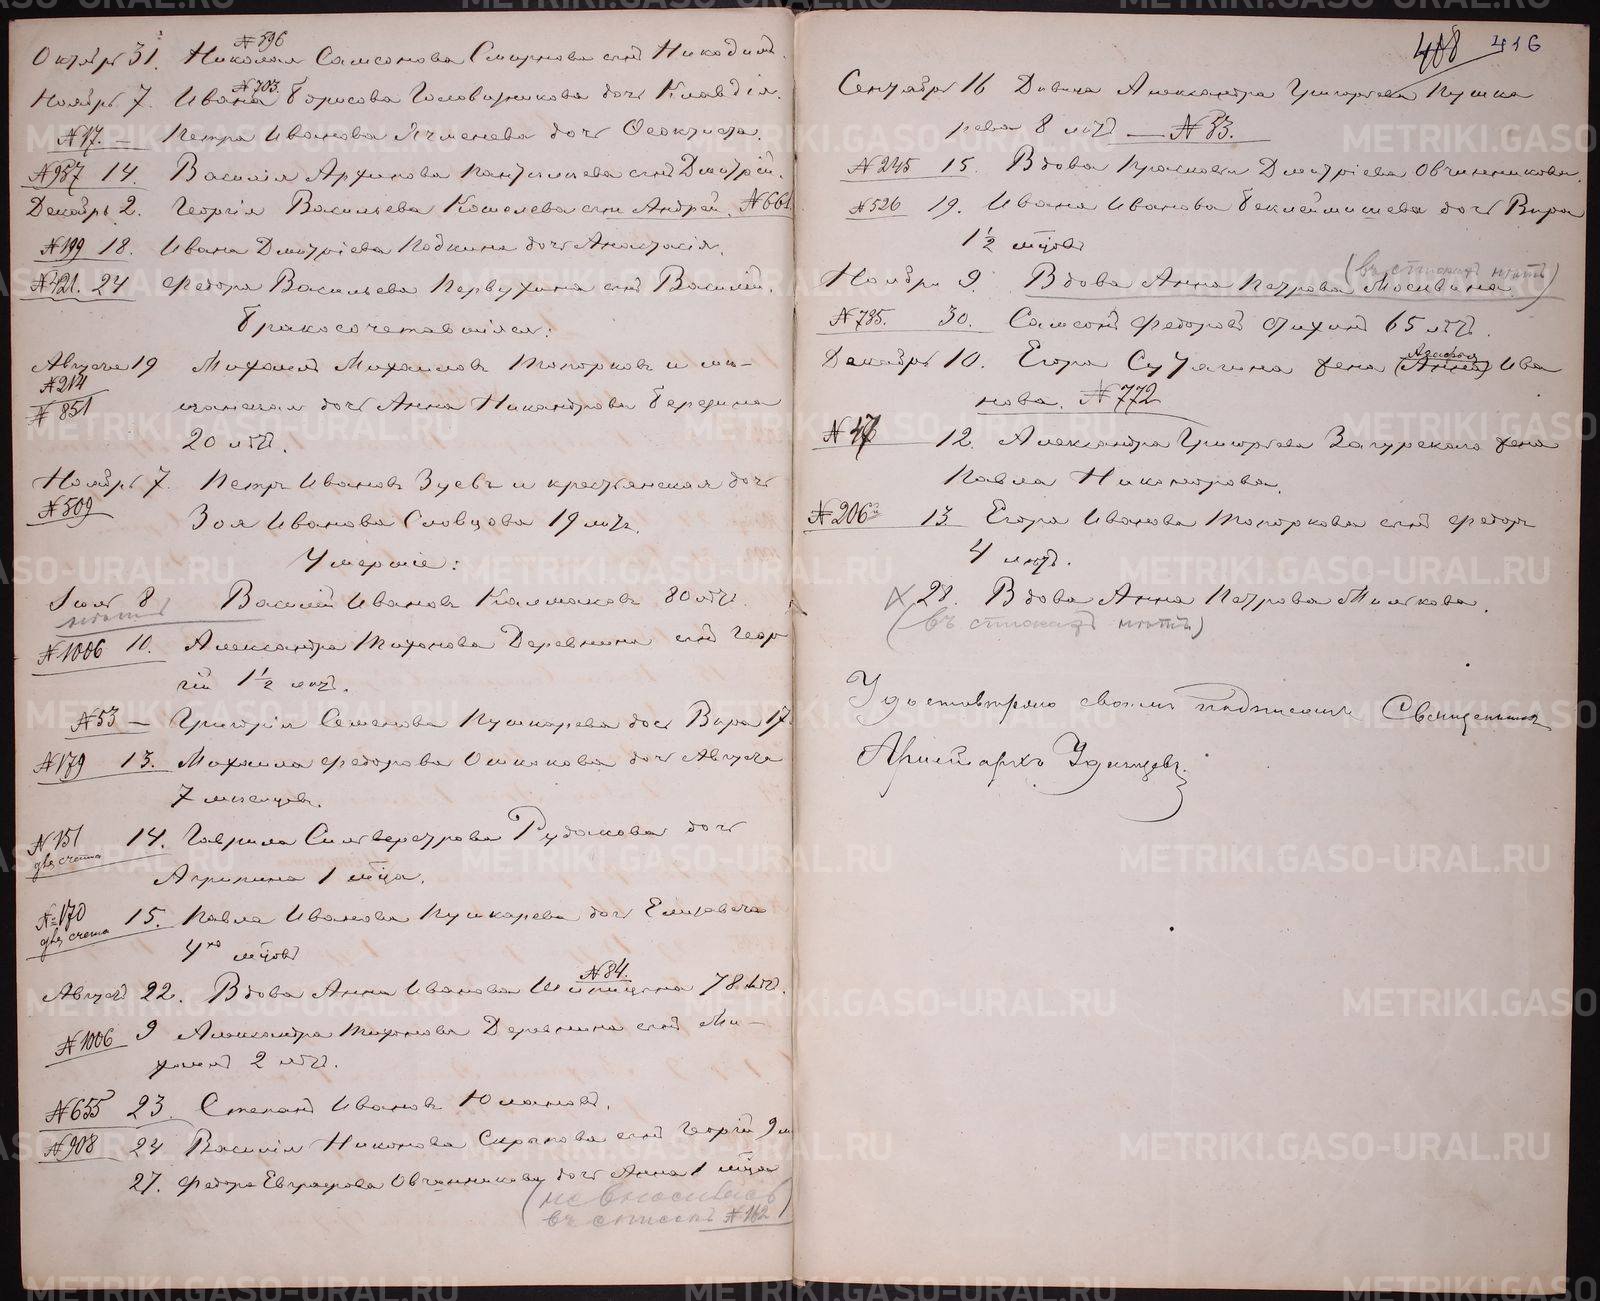 № 596
Октябрь 31. Николая Самсонова Смирнова сынъ Никодимъ.
№ 703.
Ноябрь 7. Ивана Борисова Головизникова дочь Клавдія.
№ 17. — Петра Иванова Ячменева дочь Феоктиста.
№ 937 14. Василія Архипова Пантилиева сынъ Дмитрій.
Декабрь 2. Георгія Васильева Кошелева сынъ Андрей. № 661
№ 199 18. Ивана Дмитріева Подкина дочь Анастасія.
№ 421. 24 Федора Васильева Первухина сынъ Василій.
Бракосочетавшіеся:
Августа 19 Михаилъ Михаиловъ Топорковъ и мѣ-
№ 214
№ 851 щанская дочь Анна Никандрова Бередина
20 лѣтъ.
Ноябрь 7. Петръ Ивановъ Зуевъ и крестьянская дочь
№ 509 Зоя Иванова Словцова 19 лѣтъ.
Умершіе:
Іюль 8 Василій Ивановъ Калмаковъ 80 лѣтъ.
№ 1006 10. Александра Тихонова Деревнина сынъ Геор
гій 1½ лѣтъ.
№ 53 — Григорія Семенова Пушкарева доч Вѣра 17.
№ 179 13. Михаила Федорова Ошкокова дочь Августа
7 мѣсяцевъ.
№ 151 14. Гаврила Сильверстрова Рудакова дочь
двѣ счета
Агрипина 1 мѣца.
№ 170 15. Павла Иванова Пушкарева дочь Елизавета
двѣ счета
4хъ мѣцовъ
№ 84.
Августъ 22. Вдова Анна Иванова Шипицына 78 лѣтъ.
№ 1006 9 Александра Тихонова Деревнина сынъ Ми-
хаилъ 2 лѣтъ.
№ 655 23. Степанъ Ивановъ Юлановъ.
№ 908 24 Василія Никонова Скрыпова сынъ Георгій 9 м
27. Федора Евграфова Овчинникова дочь Анна 1 мѣца
(не вносилась
въ списокъ № 162)
408 416
Сентябрь 16 Дѣвица Александра Григорьева Пушка
рева 8 лѣтъ — № 53.
№ 245 15. Вдова Прасковья Дмитріева Овчинникова.
№ 526 19. Ивана Иванова Беклемишева дочь Вѣра
1½ мѣцовъ
(въ спискахъ нѣтъ)
Ноябрь 9. Вдова Анна Петрова Москвина.
№ 735. 30. Самсонъ Федоровъ Опихинъ 65 лѣтъ.
Декабрь 10. Егора Сутягина жена (Анна) Ива
нова. № 772
№ 47 12. Александра Григорьева Загурскаго жена
Павла Никонорова.
№ 206 13 Егора Иванова Топоркова сынъ Федоръ
4 лѣтъ.
х 28. Вдова Анна Петрова Милькова.
(въ спискахъ нѣтъ)
Удостовѣряю своимъ подписомъ Священникъ
Аристархъ Удинцевъ.